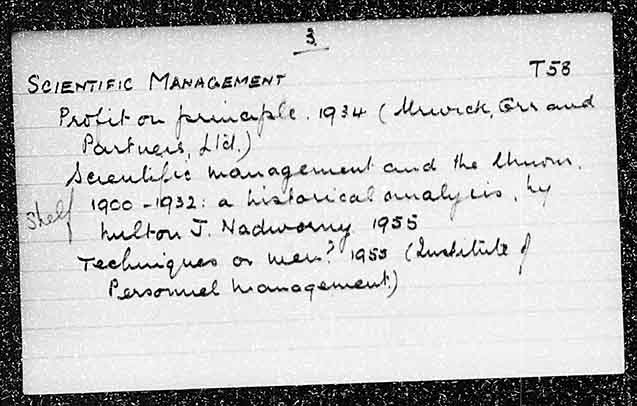 3.
SCIENTIFIC MANAGEMENT T58
Profit on principle. 1934 (Urwick, Orr and
Partners, Ltd.)
Scientific management and the Unions,
shelf 1900-1932: a historical analysis, by
Milton J. Nadworny 1955
Techniques or men? 1953 (Institute of
Personnel Management)